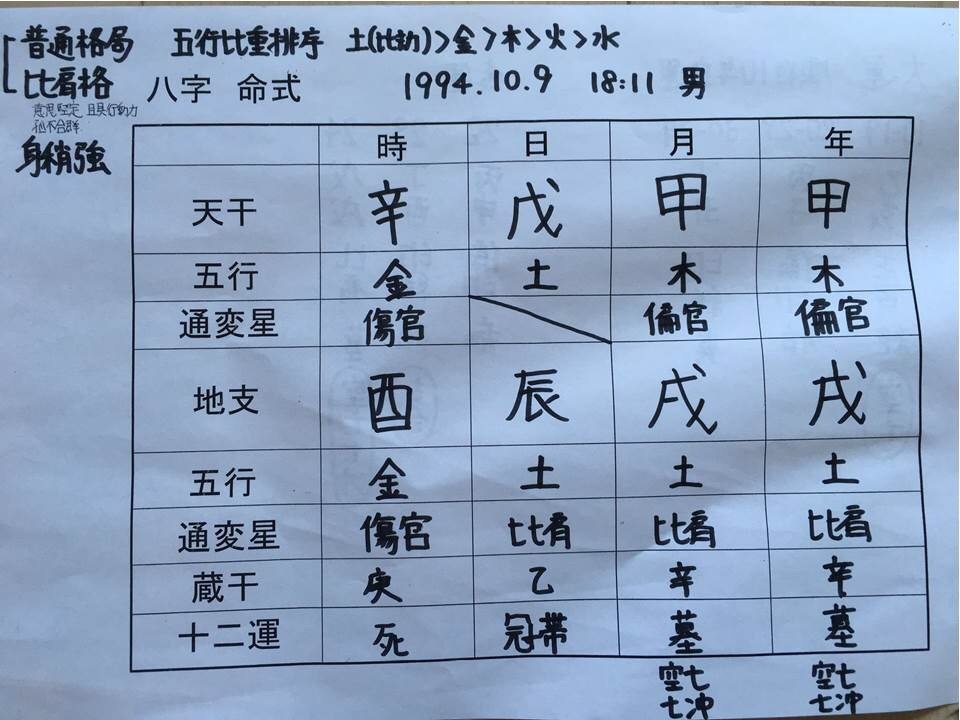 普通格局 五行比重排序 土(比劫)>金>木>火>水
比肩格 八字 命式 1994.10.9 18:11 男
意思堅定 且具行動力
但不合群
身稍強
時 日 月 年
天干 辛 戊 甲 甲
五行 金 土 木 木
通変星 傷官 偏官 偏官
地支 酉 辰 戌 戌
五行 金 土 土 土
通変星 傷官 比肩 比肩 比肩
蔵干 庚 乙 辛 辛
十二運 死 冠帯 墓 墓
空亡 空亡
七沖 七沖